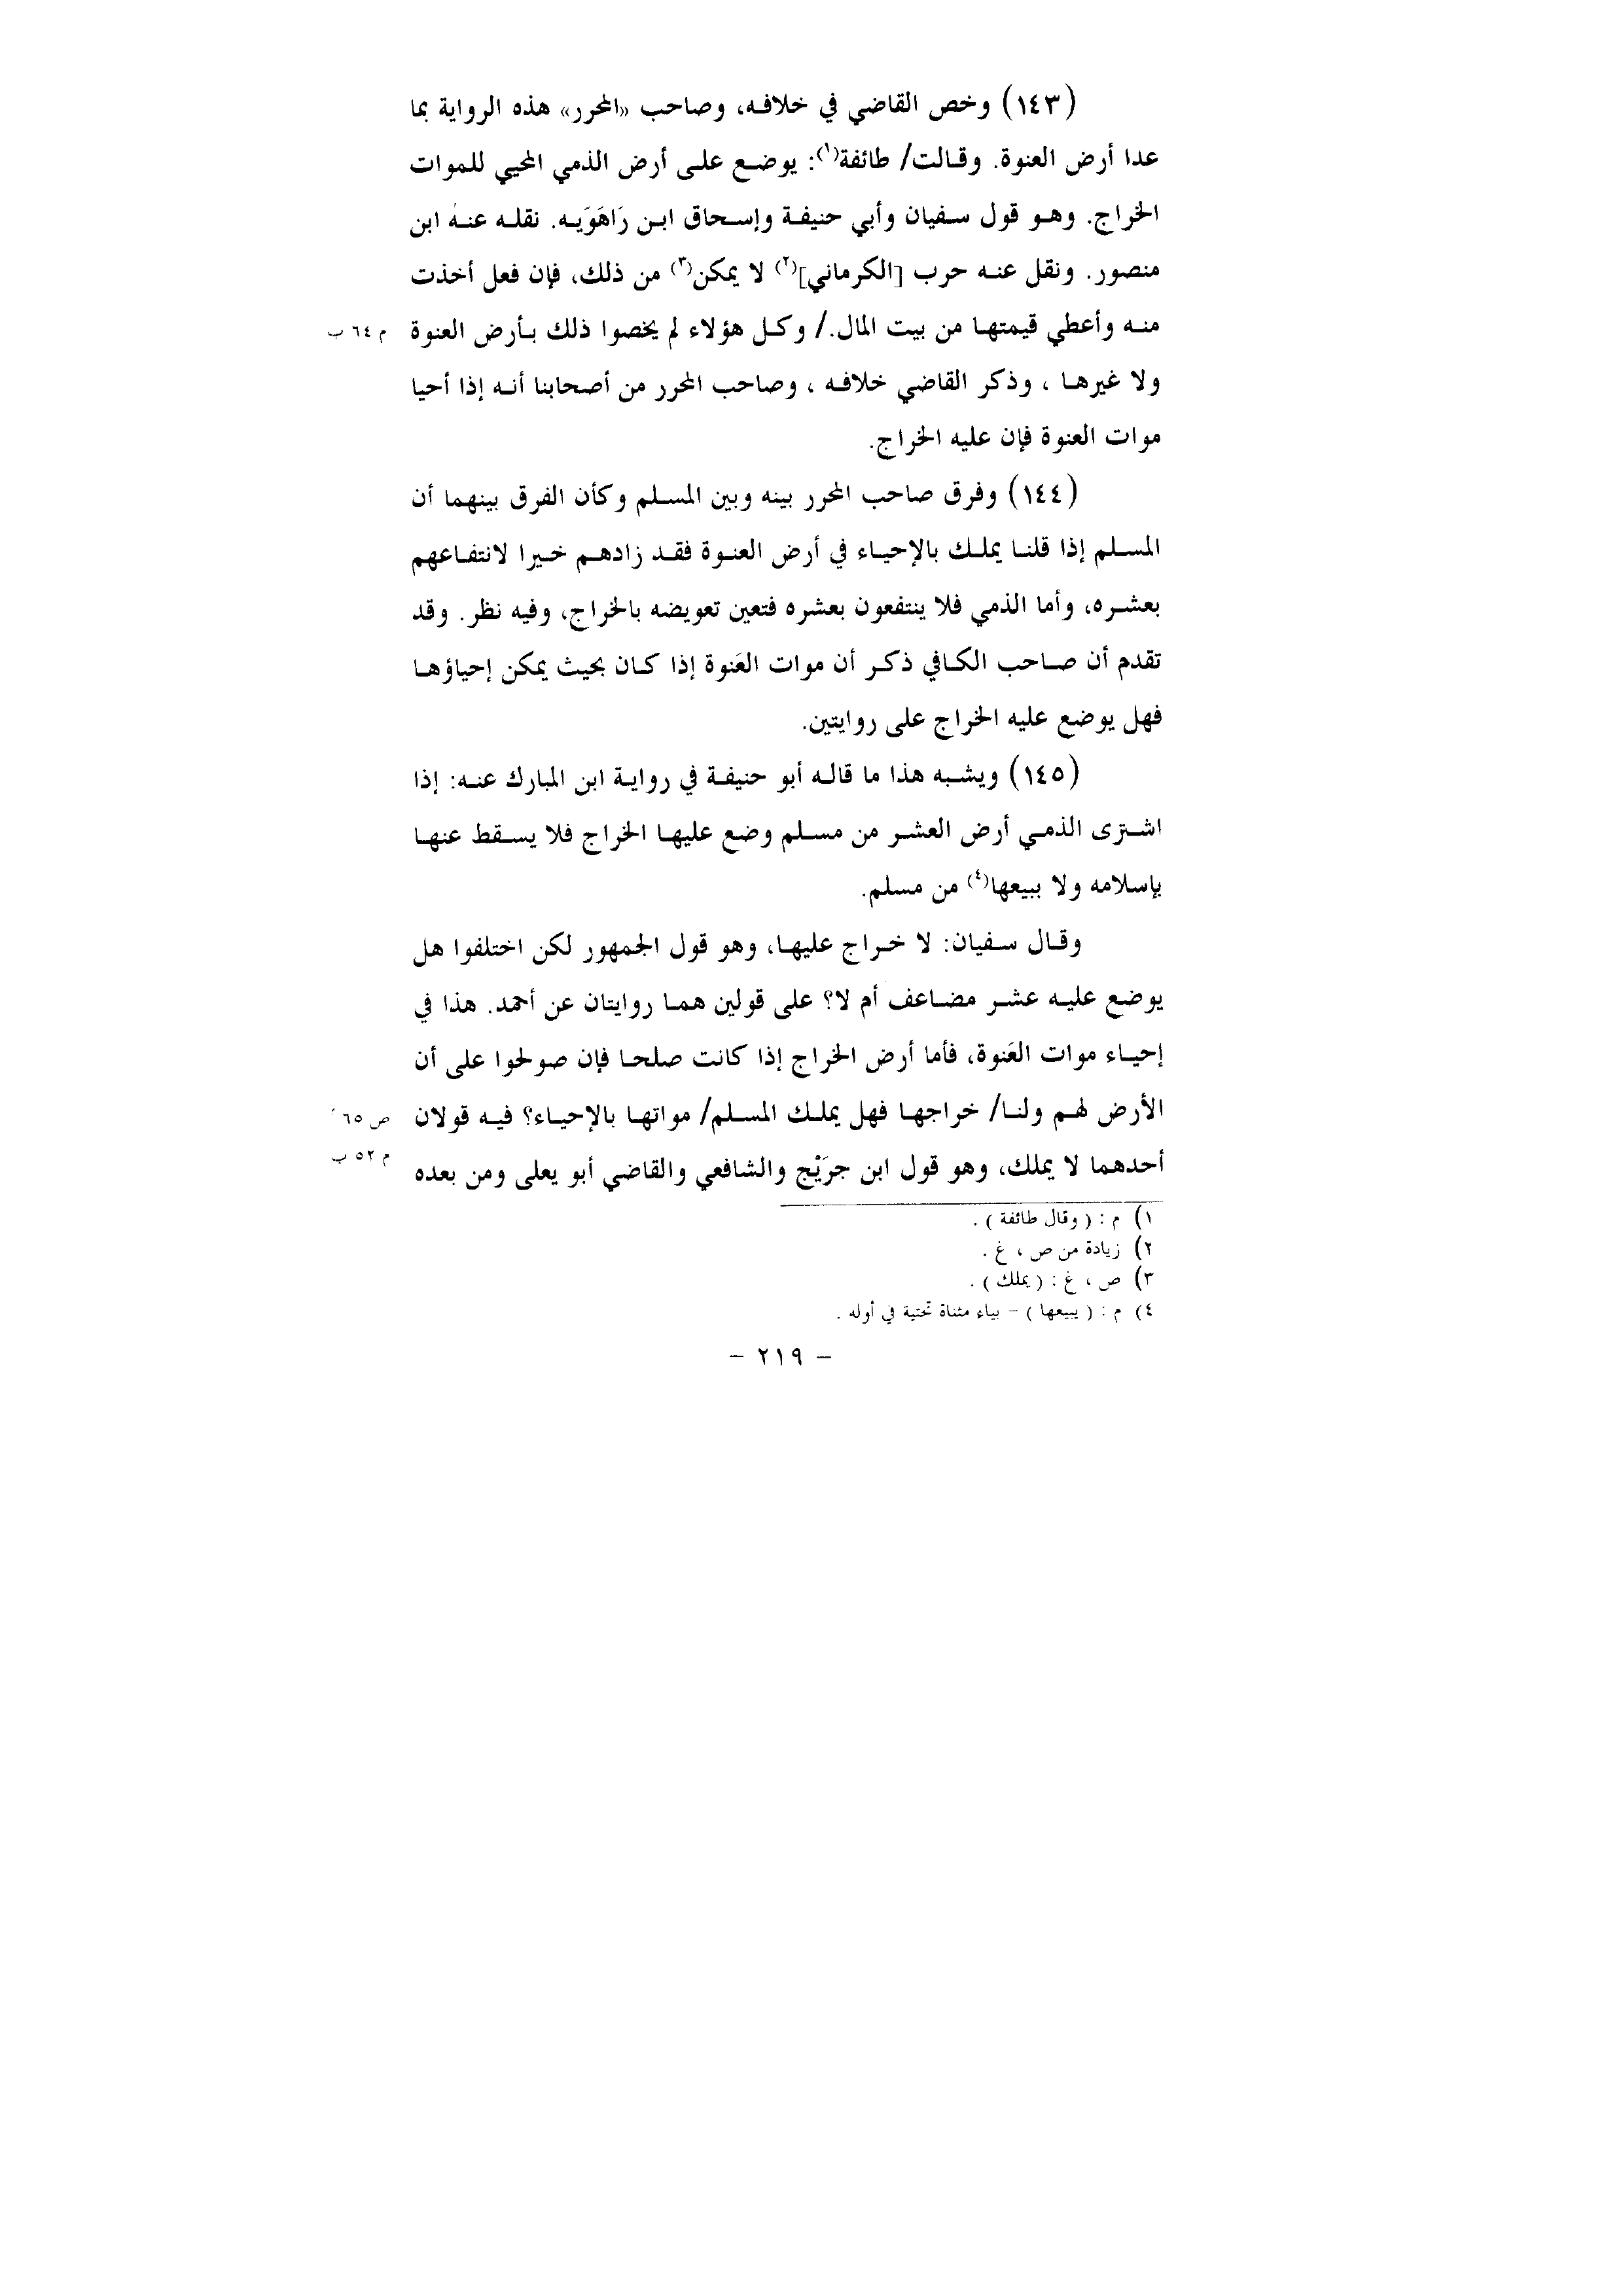 (١٤٣) وخص القاضي في خلافه، وصاحب «المحرر» هذه الرواية بما
عدا أرض العنوة. وقالت/ طائفة(١): يوضع على أرض الذمي المحيي للموات
الخراج. وهو قول سفيان وأبي حنيفة وإسحاق ابن رَاهَوَيه. نقله عنه ابن
منصور. ونقل عنه حرب [الكرماني](٢) لا يمكن(٣) من ذلك، فإن فعل أخذت
منه وأعطي قيمتها من بيت المال./ وكل هؤلاء لم يخصوا ذلك بأرض العنوة
م ٦٤ ب
ولا غيرها ، وذكر القاضي خلافه ، وصاحب المحرر من أصحابنا أنه إذا أحيا
موات العنوة فإن عليه الخراج.
(١٤٤) وفرق صاحب المحرر بينه وبين المسلم وكأن الفرق بينهما أن
المسلم إذا قلنا يملك بالإحياء في أرض العنوة فقد زادهم خيرا لانتفاعهم
بعشره، وأما الذمي فلا ينتفعون بعشره فتعين تعويضه بالخراج، وفيه نظر. وقد
تقدم أن صاحب الكافي ذكر أن موات العَنوة إذا كان بحيث يمكن إحياؤها
فهل يوضع عليه الخراج على روايتين.
(١٤٥) ويشبه هذا ما قاله أبو حنيفة في رواية ابن المبارك عنه: إذا
اشترى الذمي أرض العشر من مسلم وضع عليها الخراج فلا يسقط عنها
بإسلامه ولا ببيعها(٤) من مسلم.
وقال سفيان: لا خراج عليها، وهو قول الجمهور لكن اختلفوا هل
يوضع عليه عشر مضاعف أم لا؟ على قولين هما روايتان عن أحمد. هذا في
إحياء موات العَنوة، فأما أرض الخراج إذا كانت صلحا فإن صولحوا على أن
الأرض لهم ولنا/ خراجها فهل يملك المسلم/ مواتها بالإحياء؟ فيه قولان
ص ٦٥
أحدهما لا يملك، وهو قول ابن جرَيْج والشافعي والقاضي أبو يعلى ومن بعده
م ٥٢ ب
١) م : ( وقال طائفة ) .
٢) زيادة من ص ، غ .
٣) ص ، غ : ( يملك ) .
٤) م : ( يبيعها ) – بياء مثناة تحتية في أوله .
– ٢١٩ –